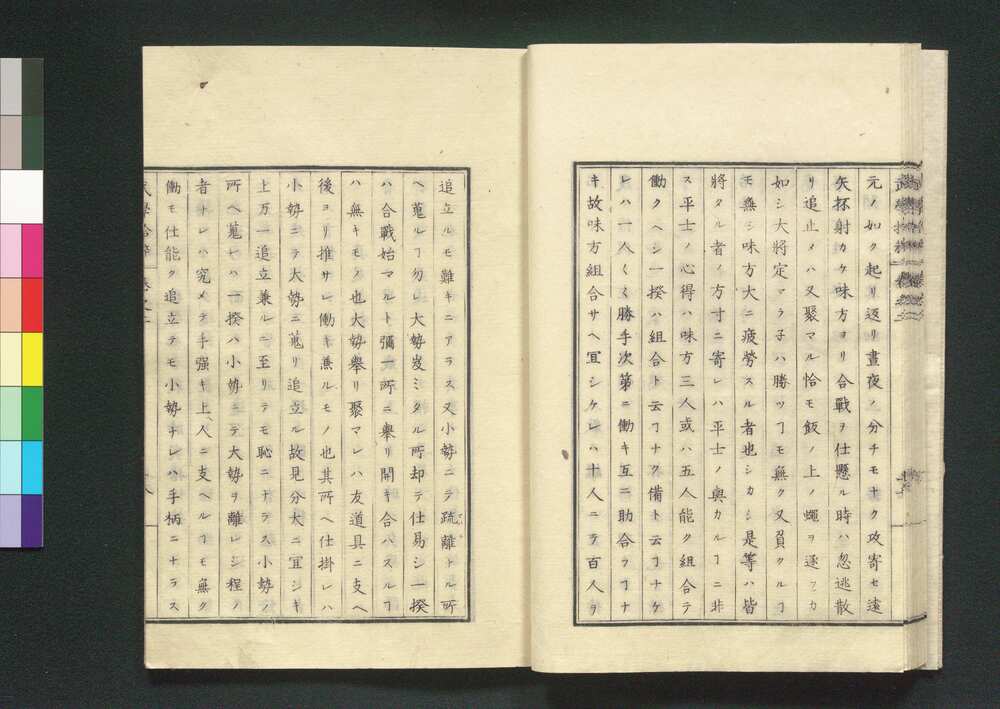 元ノ如ク起リ返リ晝夜ノ分チモナク攻寄セ遠
矢抔射カケ味方ヨリ合戰ヲ仕懸ル時ハ忽逃散
リ追止メハ又聚マル恰モ飯ノ上ノ蠅ヲ逐フカ
如シ大將定マラ子ハ勝ツヿモ無ク又負クルヿ
モ無シ味方大ニ疲勞スル者也シカシ是等ハ皆
將タル者ノ方寸ニ寄レハ平士ノ與カルヿニ非
ス平士ノ心得ハ味方三人或ハ五人能ク組合テ
働クヘシ一揆ハ組合ト云フヿナク備ト云フヿナケ
レハ一人〱勝手次第ニ働キ互ニ助合フヿナ
キ故味方組合サヘ冝シケレハ十人ニテ百人ヲ
追立ルモ難キニアラス又小勢ニテ疏離トル所
ヘ蒐ルヿ勿レ大勢岌ミタル所却テ仕易シ一揆
ハ合戰始マルト彌一所ニ擧リ開キ合ハスルヿ
ハ無キモノ也大勢擧リ聚マレハ友道具ニ支ヘ
後ヨリ推サレ働キ兼ルモノ也其所ヘ仕掛レハ
小勢ニテ大勢ニ蒐リ追立ル故見分大ニ冝シキ
上万一追立兼ルニ至リテモ恥ニナラス小勢ノ
所ヘ蒐レハ一揆ハ小勢ニテ大勢ヲ離レシ程ノ
者ナレハ究メテ手强キ上、人ニ支ヘルヿモ無ク
働モ仕能ク追立テモ小勢ナレハ手柄ニナラス